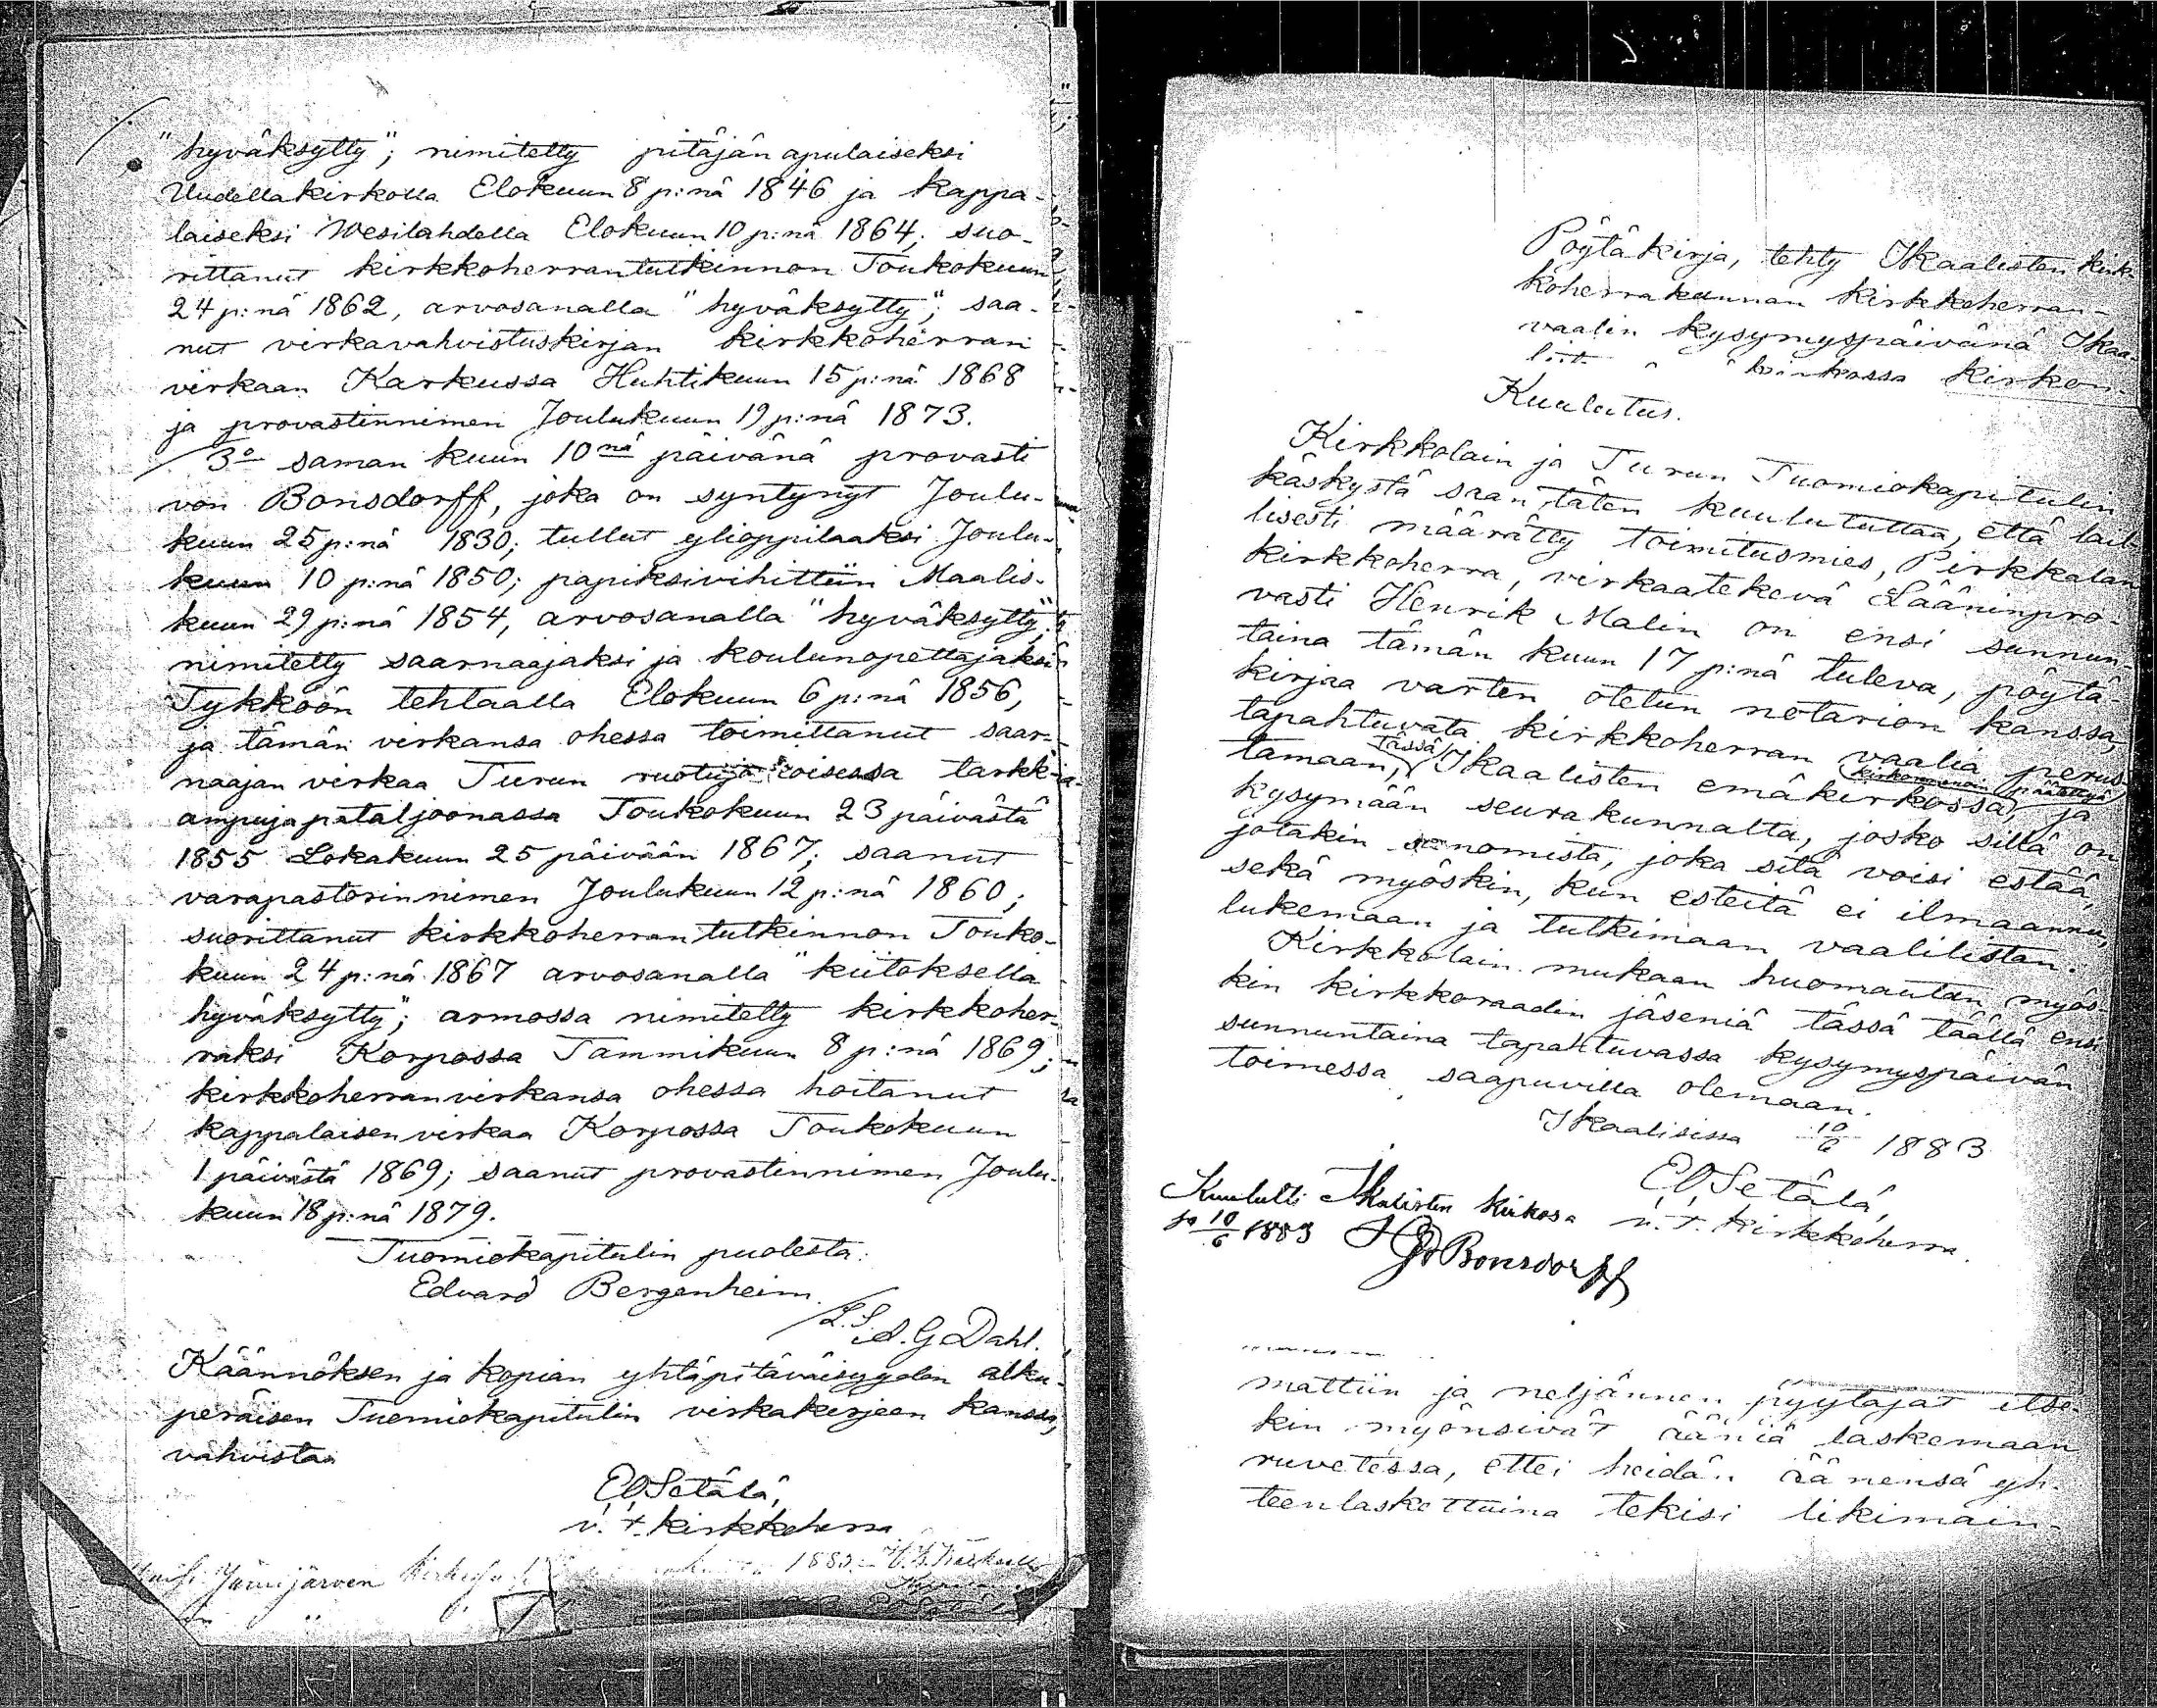 "hyväksytty"; nimitetty pitäjän apulaiseksi
Uudellakirkolla Elokuun 8 p:nä 1846 ja kappa-
laiseksi Wesilahdella Elokuun 10 p:nä 1864; suo-
rittanut kirkkoherrantutkinnon Toukokuun
24 p:nä 1862, arvosanalla "hyväksytty"; saa-
nut virkavahvistuskirjan kirkkoherran
virkaan Karkussa Huhtikuun 15 p:nä 1868
ja provastinnimen Joulukuun 19 p:nä 1873.
3o saman kuun 10nä päivänä provasti
von Bonsdorff, joka on syntynyt Joulu-
kuun 25 p:nä 1830; tullut ylioppilaaksi Joulu-
kuun 10 p:nä 1850; papiksivihittiin Maalis-
kuun 29 p:nä 1854, arvosanalla "hyväksytty";
nimitetty saarnaajaksi ja koulunopettajaksi
Tykköön tehtaalla Elokuun 6 p:nä 1856,
ja tämän virkansa ohessa toimittanut saar-
naajan virkaa Turun tarkk-
ampujapataljoonassa Toukokuun 23 päivästä
1855 Lokakuun 25 päivään 1867; saanut
varapastorinnimen Joulukuun 12 p:nä 1860;
suorittanut kirkkoherrantutkinnon Touko-
kuun 24 p:nä 1867 arvosanalla "kiitoksella
hyväksytty"; armossa nimitetty kirkkoher-
raksi Korpossa Tammikuun 8 p:nä 1869;
kirkkoherranvirkansa ohessa hoitanut
kappalaisenvirkaa Korpossa Toukokuun
1 päivästä 1869; saanut provastinnimen Joulu-
kuun 18 p:nä 1879.
Tuomiokapitulin puolesta:
Edvard Bergenheim.
L.S. A. G. Dahl.
Käännöksen ja kopian yhtäpitäväisyyden alku-
peräisen Tuomiokapitulin virkakirjeen kanssa,
vahvistaa
E. Setälä,
v. t. kirkkoherra
Jämijärven 1883
Pöytäkirja, tehty Ikaalisten kirk-
koherrakunnan kirkkoherran-
vaalin kysymyspäivänä Ikaa-
kirkossa kirkon
Kuulutus.
Kirkkolain ja Turun Tuomiokapitulin
käskystä saan täten kuuluttaa, että lail-
lisesti määrätty toimitusmies, Pirkkalan
kirkkoherra, virkaatekevä Lääninpro-
vasti Henrik Malin on ensi sunnun-
taina tämän kuun 17 p:nä tuleva, pöytä-
kirjaa varten otetun notarion kanssa,
tapahtuvata kirkkoherran vaalia perus-
tamaan, tässä Ikaalisten emäkirkossa, kirkonmenon päätettyä ja
kysymään seurakunnalta, josko sillä on
jotakin sanomista, joka sitä voisi estää,
sekä myöskin, kun esteitä ei ilmaannu,
lukemaan ja tutkimaan vaalilistan.
Kirkkolain mukaan huomautan myös-
kin kirkkoraadin jäseniä tässä täällä ensi
sunnuntaina tapahtuvassa kysymyspäivän
toimessa saapuvilla olemaan.
Ikaalisissa 10/6 1883
E. Setälä,
v. t. kirkkoherra.
Kuulutti Ikalisten kirkosa
10/6 1883 Bonsdorff
mattiin ja neljännen pyytäjät itse-
kin myönsivät ääniä laskemaan
ruvetessa, ettei heidän äänensä yh-
teenlaskettuina tekisi likimain-